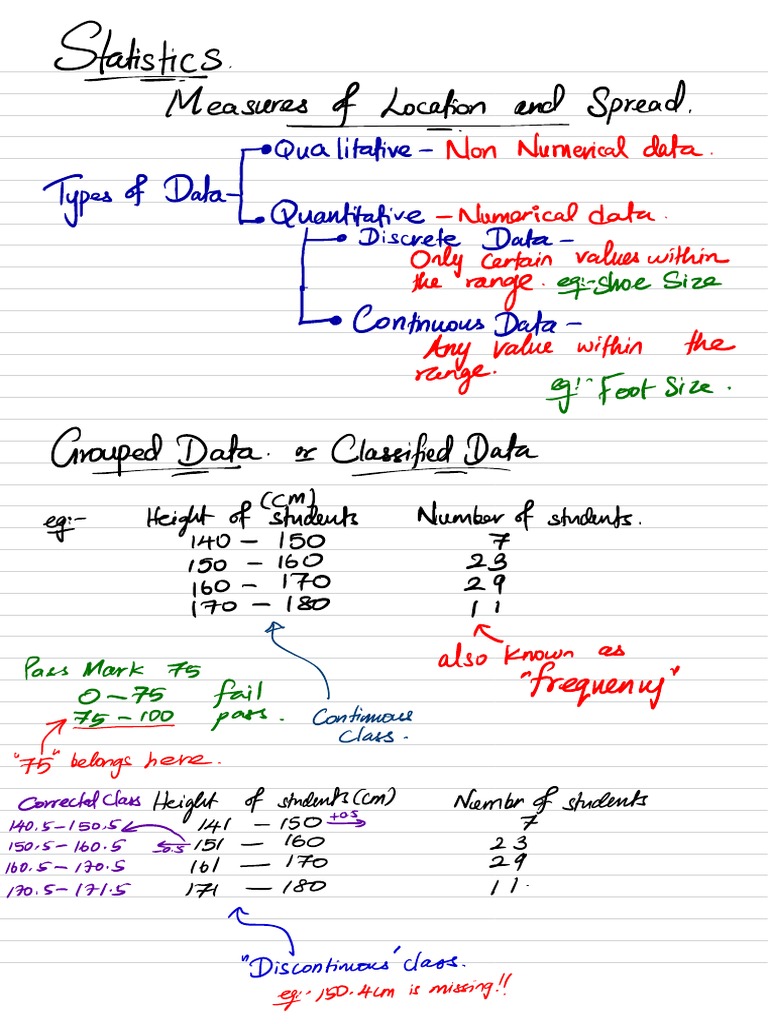 Statistics.
Measures of Location and Spread.
Types of Data
Qualitative - Non Numerical data.
Quantitative - Numerical data.
Discrete Data -
Only certain values within
the range. eg:- Shoe Size
Continuous Data -
Any value within the
range.
eg:- Foot Size.
Grouped Data. or Classified Data
(cm)
eg:- Height of students Number of students.
140 - 150 7
150 - 160 23
160 - 170 29
170 - 180 11
also known as
"frequency"
Continuous
Class.
Pass Mark 75
0 - 75 fail
75 - 100 pass.
"75" belongs here.
Corrected Class Height of students (cm) Number of students
140.5 - 150.5 141 - 150 +0.5 7
150.5 - 160.5 -0.5 151 - 160 23
160.5 - 170.5 161 - 170 29
170.5 - 171.5 171 - 180 11.
"Discontinuous" class.
eg:- 150.4cm is missing!!